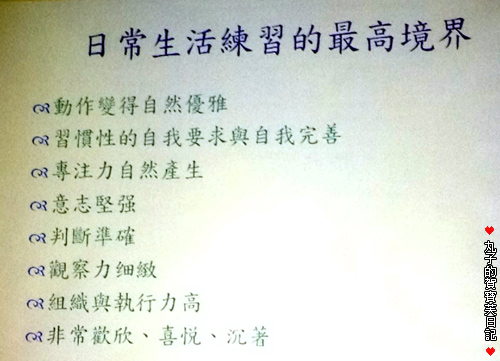 日常生活練習的最高境界
動作變得自然優雅
習慣性的自我要求與自我完善
專注力自然產生
意志堅强
判斷準確
觀察力细緻
組織與執行力高
非常歡欣、喜悦、沉著
♥丸子的賀寶芙日記♥